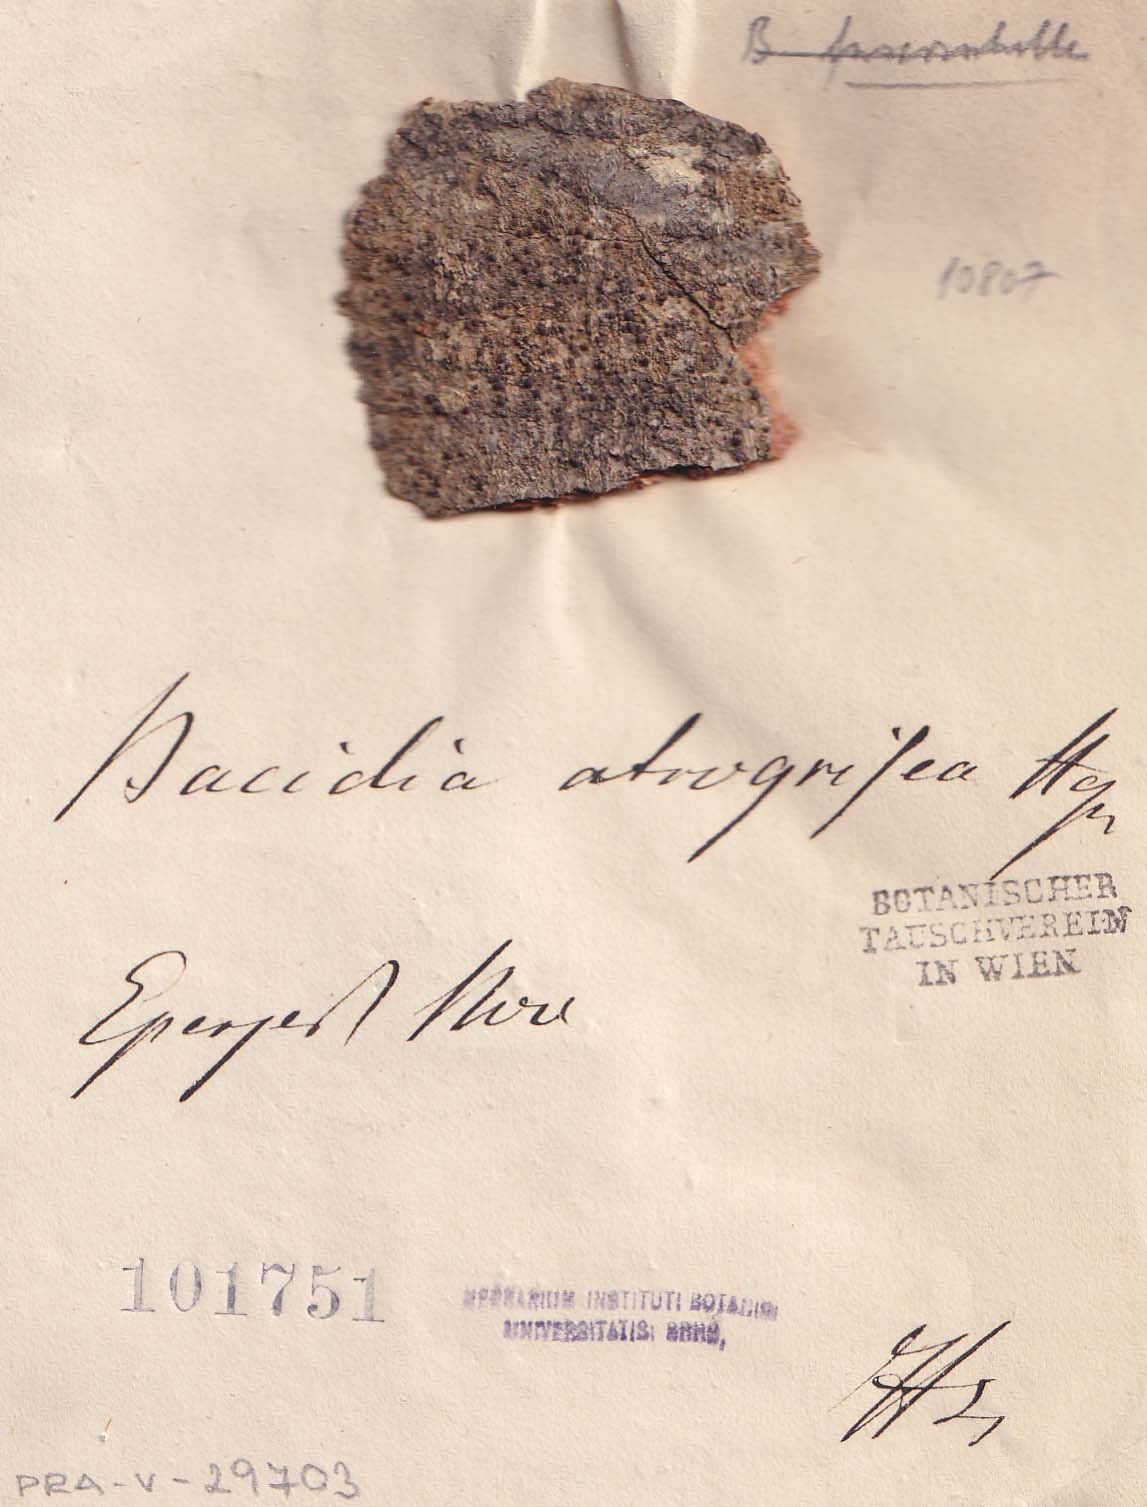 B.
10807
Bacidia atrogrisea Hep
BOTANISCHER
TAUSCHVEREIN
IN WIEN
Eperjes
101751
HERBARIUM INSTITUTI BOTANICI
UNIVERSITATIS BRNO,
Hz
PRA-V-29703